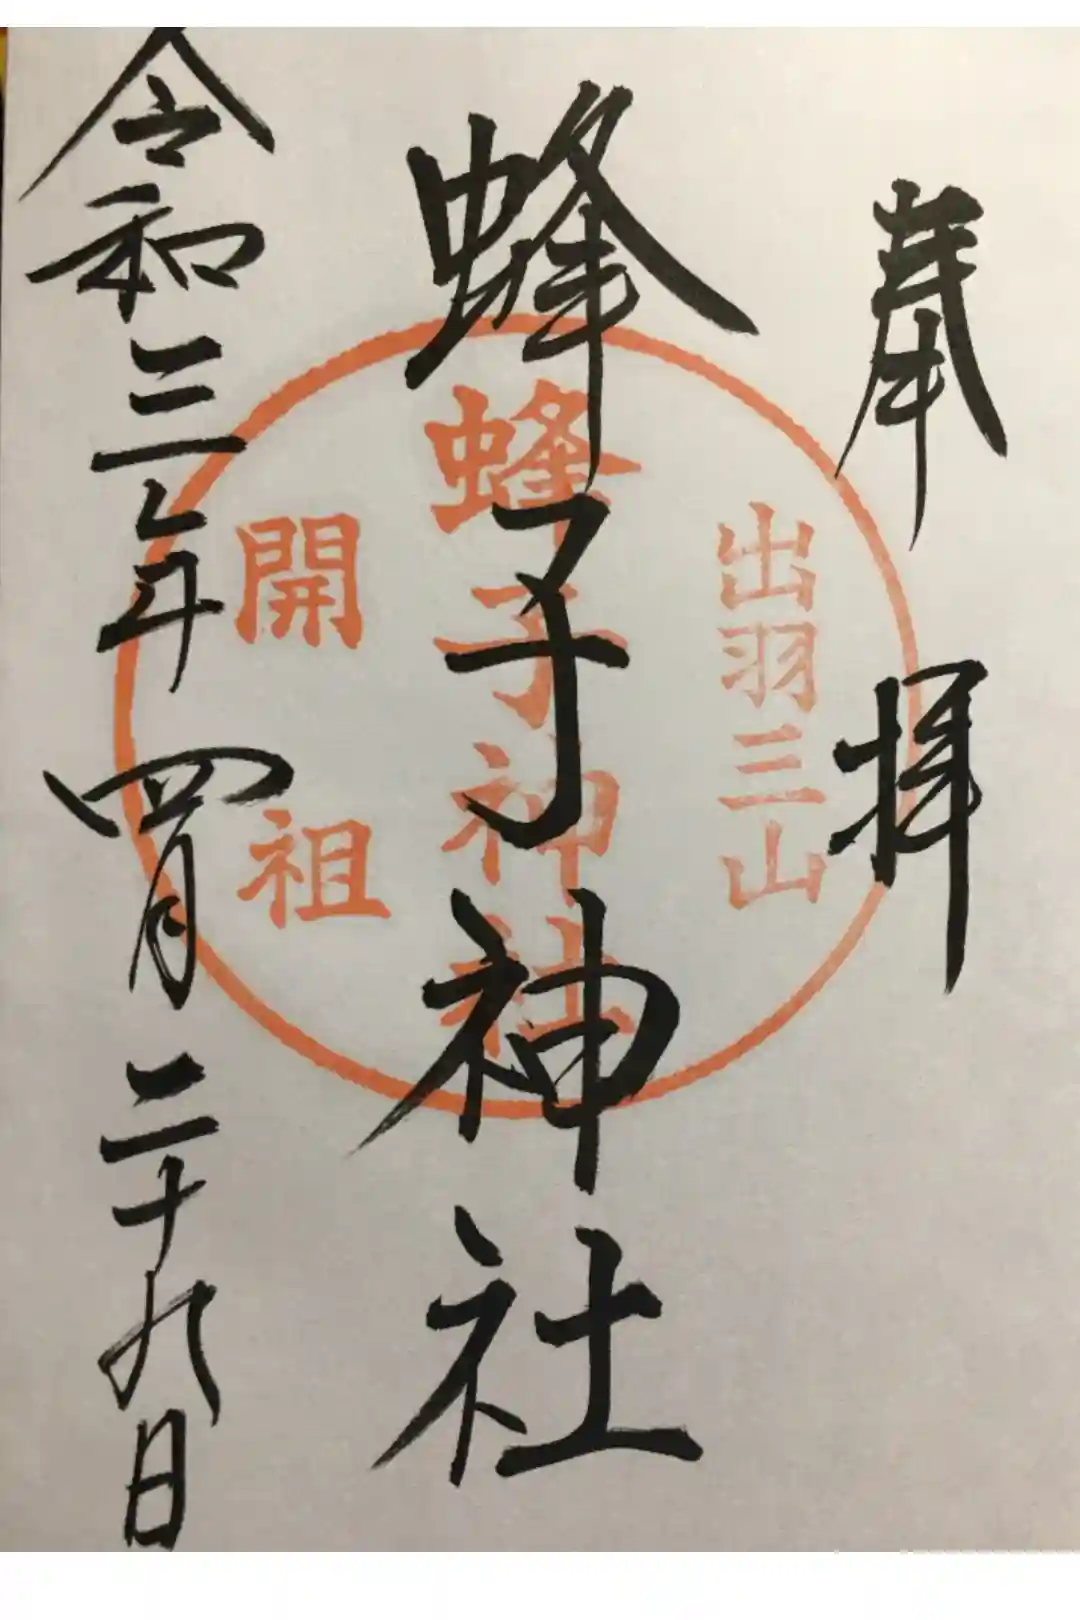 奉拝
出羽三山
蜂子神社
蜂子神社
開祖
令和三年四月二十九日